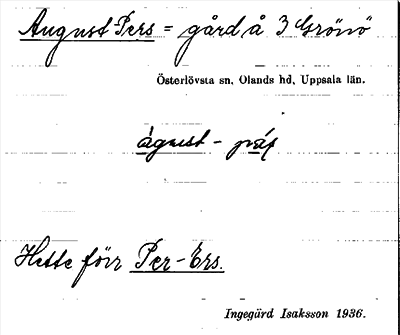 August Pers = gård å 3 Grönö
Österlövsta sn, Olands hd, Uppsala län.
águst -
Hette förr Per-Ers.
Ingegärd Isaksson 1936.